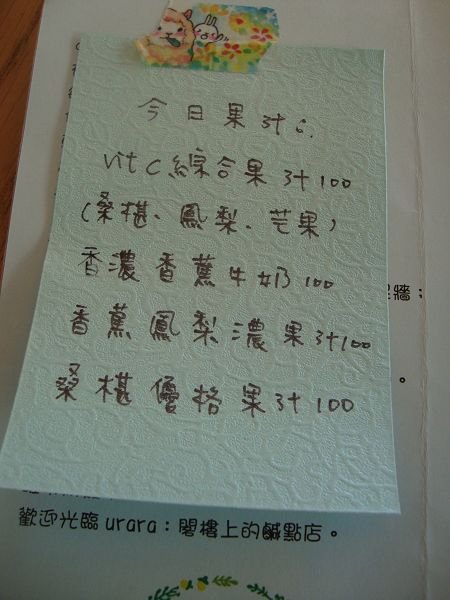 今日果汁:
vit C 綜合果汁100
(桑椹、鳳梨、芒果)
香濃香蕉牛奶100
香蕉鳳梨濃果汁100
桑椹優格果汁100
牆：
。
歡迎光臨urara：閣樓上的鹹點店。